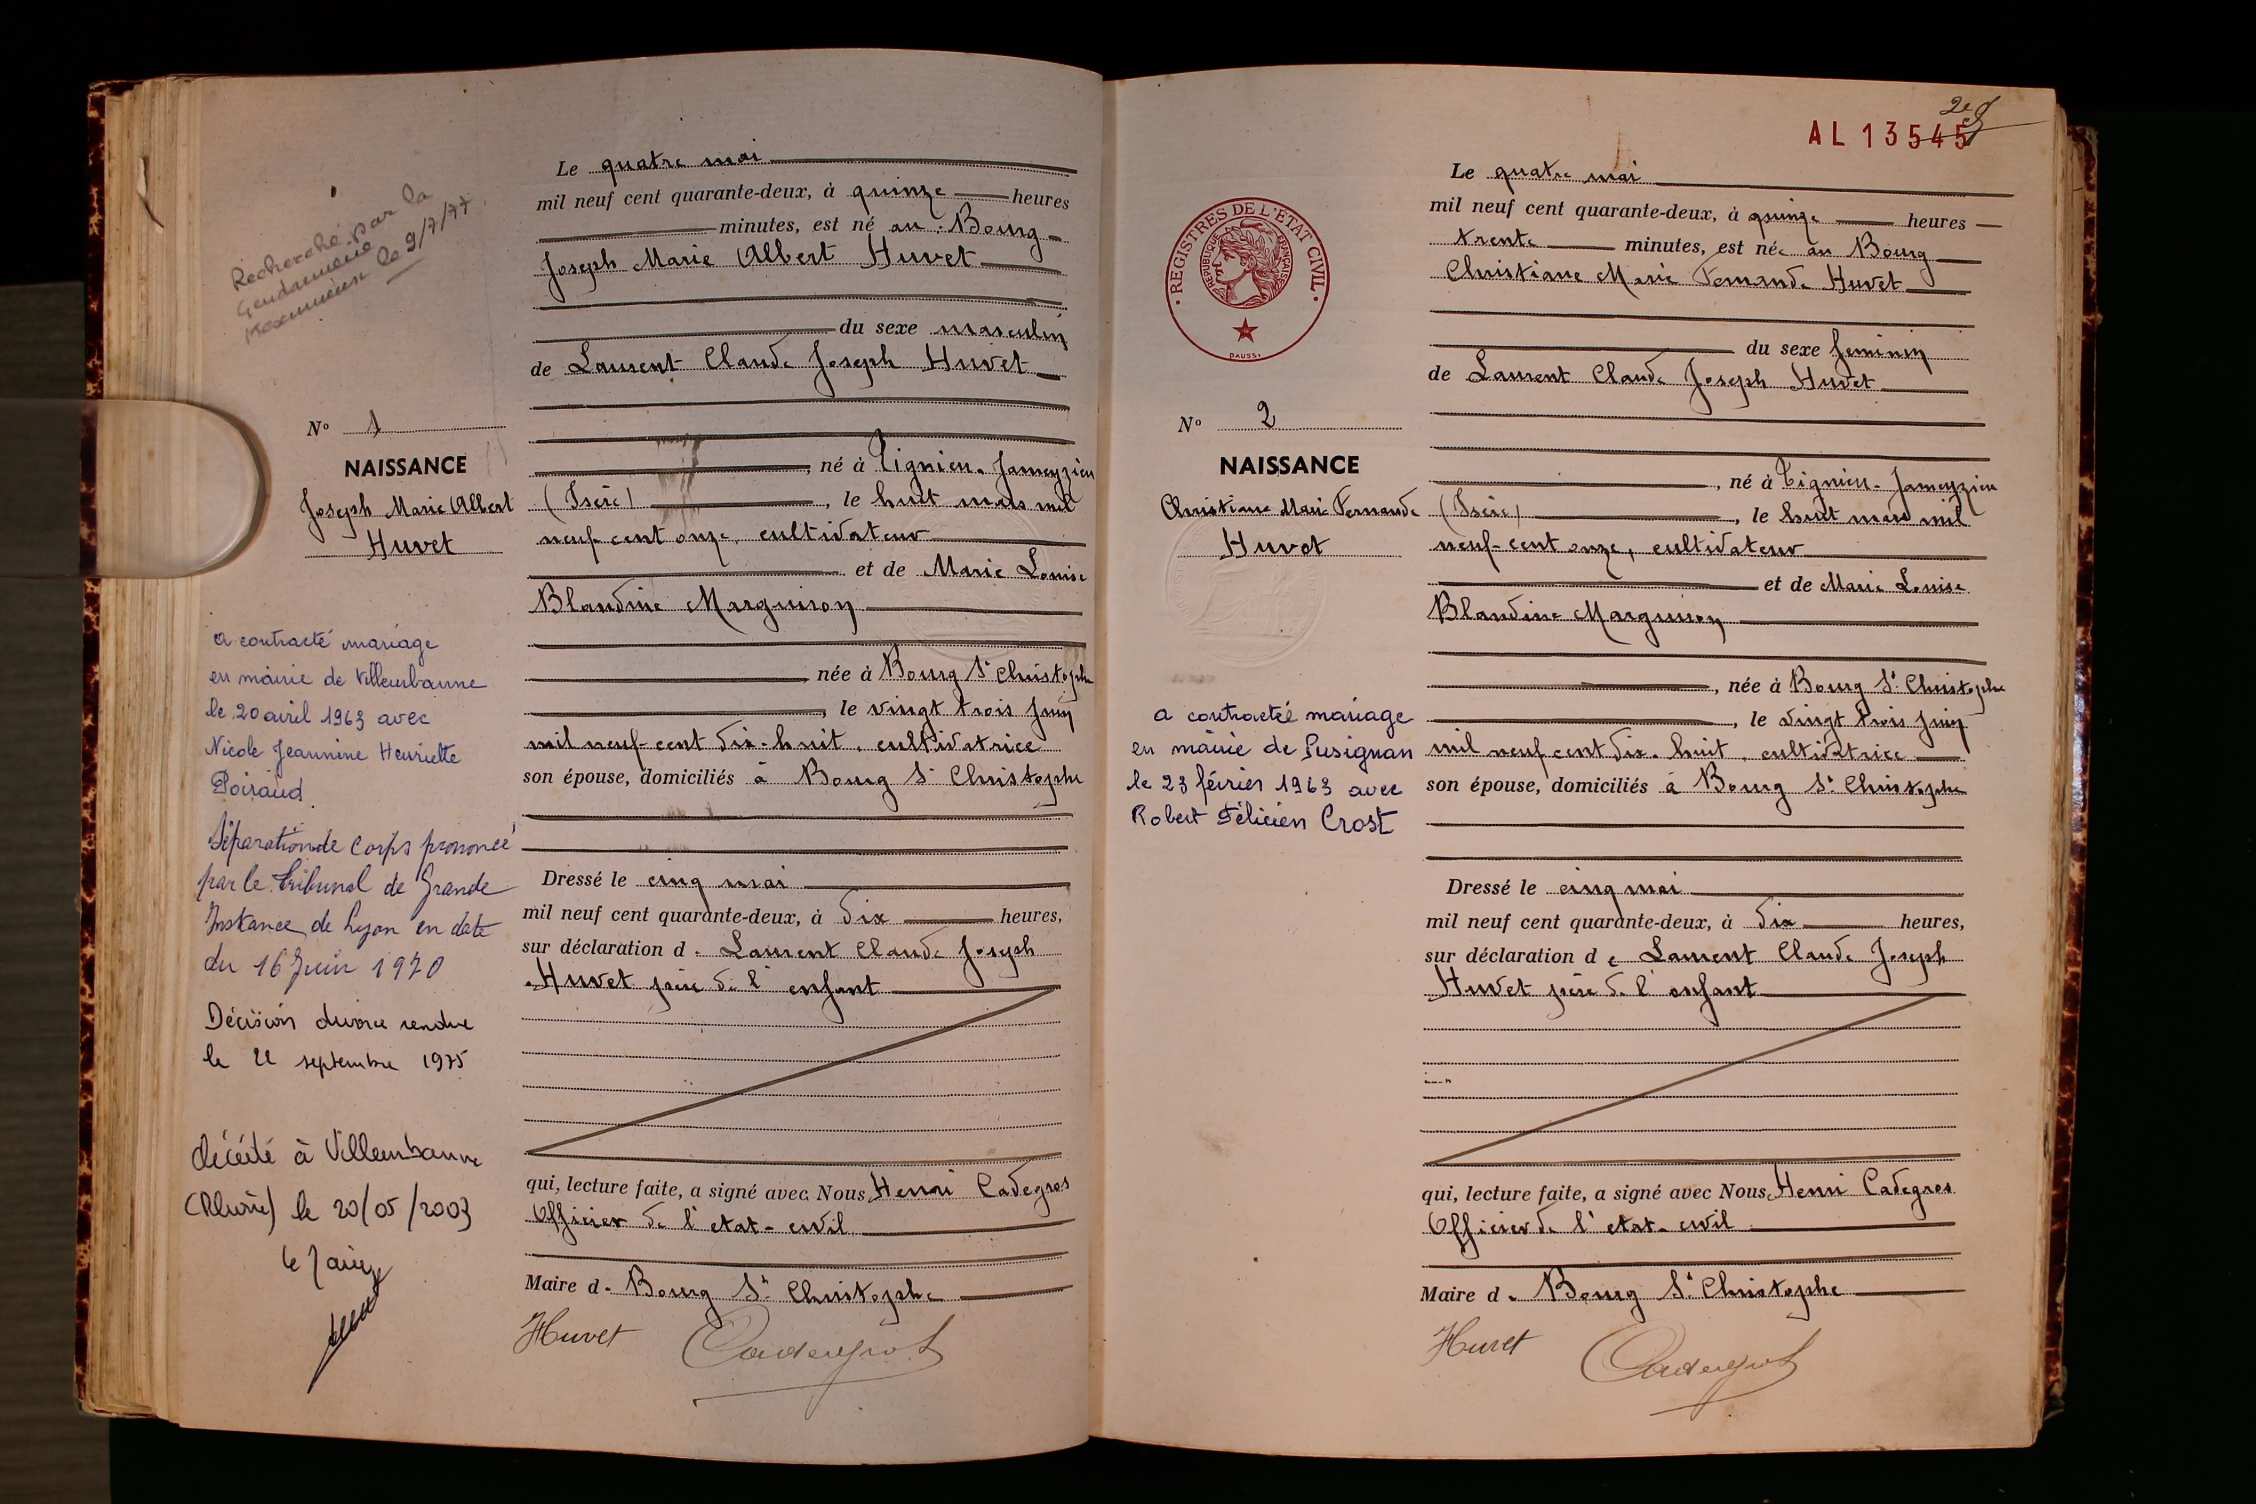 Recherché par la
Gendarmerie
Meximieux le 9/7/77
N° 1
NAISSANCE
Joseph Marie Albert
Huvet
a contracté mariage
en mairie de Villeurbanne
le 20 avril 1963 avec
Nicole Jeannine Henriette
Poiraud.
Séparation de corps prononcé
par le Tribunal de Grande
Instance de Lyon en date
du 16 Juin 1970
Décision divorce rendue
le 22 septembre 1975
décédé à Villeurbanne
(Rhône) le 20/05/2003
le Maire
Le quatre mai
mil neuf cent quarante-deux, à quinze heures
minutes, est né au Bourg
Joseph Marie Albert Huvet
du sexe masculin
de Laurent Claude Joseph Huvet
, né à Tignieu-Jameyzieu
(Isère) , le huit mars mil
neuf-cent onze, cultivateur
et de Marie Louise
Blandine Marguiron
née à Bourg St Christophe
, le vingt trois Juin
mil neuf-cent dix-huit, cultivatrice
son épouse, domiciliés à Bourg St Christophe
Dressé le cinq mai
mil neuf cent quarante-deux, à dix heures,
sur déclaration de Laurent Claude Joseph
Huvet père de l'enfant
qui, lecture faite, a signé avec Nous Henri Cadegros
Officier de l'etat-civil
Maire de Bourg St Christophe
Huvet Cadegros
2e
AL 13545
REGISTRES DE L'ÉTAT CIVIL
RÉPUBLIQUE FRANÇAISE
DAUSSY
N° 2
NAISSANCE
Christiane Marie Fernande
Huvet
a contracté mariage
en mairie de Pusignan
le 23 février 1963 avec
Robert Félicien Crost
Le quatre mai
mil neuf cent quarante-deux, à quinze heures
trente minutes, est née au Bourg
Christiane Marie Fernande Huvet
du sexe feminin
de Laurent Claude Joseph Huvet
, né à Tignieu-Jameyzieu
(Isère) , le huit mars mil
neuf-cent onze, cultivateur
et de Marie Louise
Blandine Marguiron
, née à Bourg St Christophe
, le vingt trois Juin
mil neuf cent dix-huit, cultivatrice
son épouse, domiciliés à Bourg St Christophe
Dressé le cinq mai
mil neuf cent quarante-deux, à dix heures,
sur déclaration de Laurent Claude Joseph
Huvet père de l'enfant
qui, lecture faite, a signé avec Nous Henri Cadegros
Officier de l'etat-civil
Maire de Bourg St Christophe
Huvet Cadegros